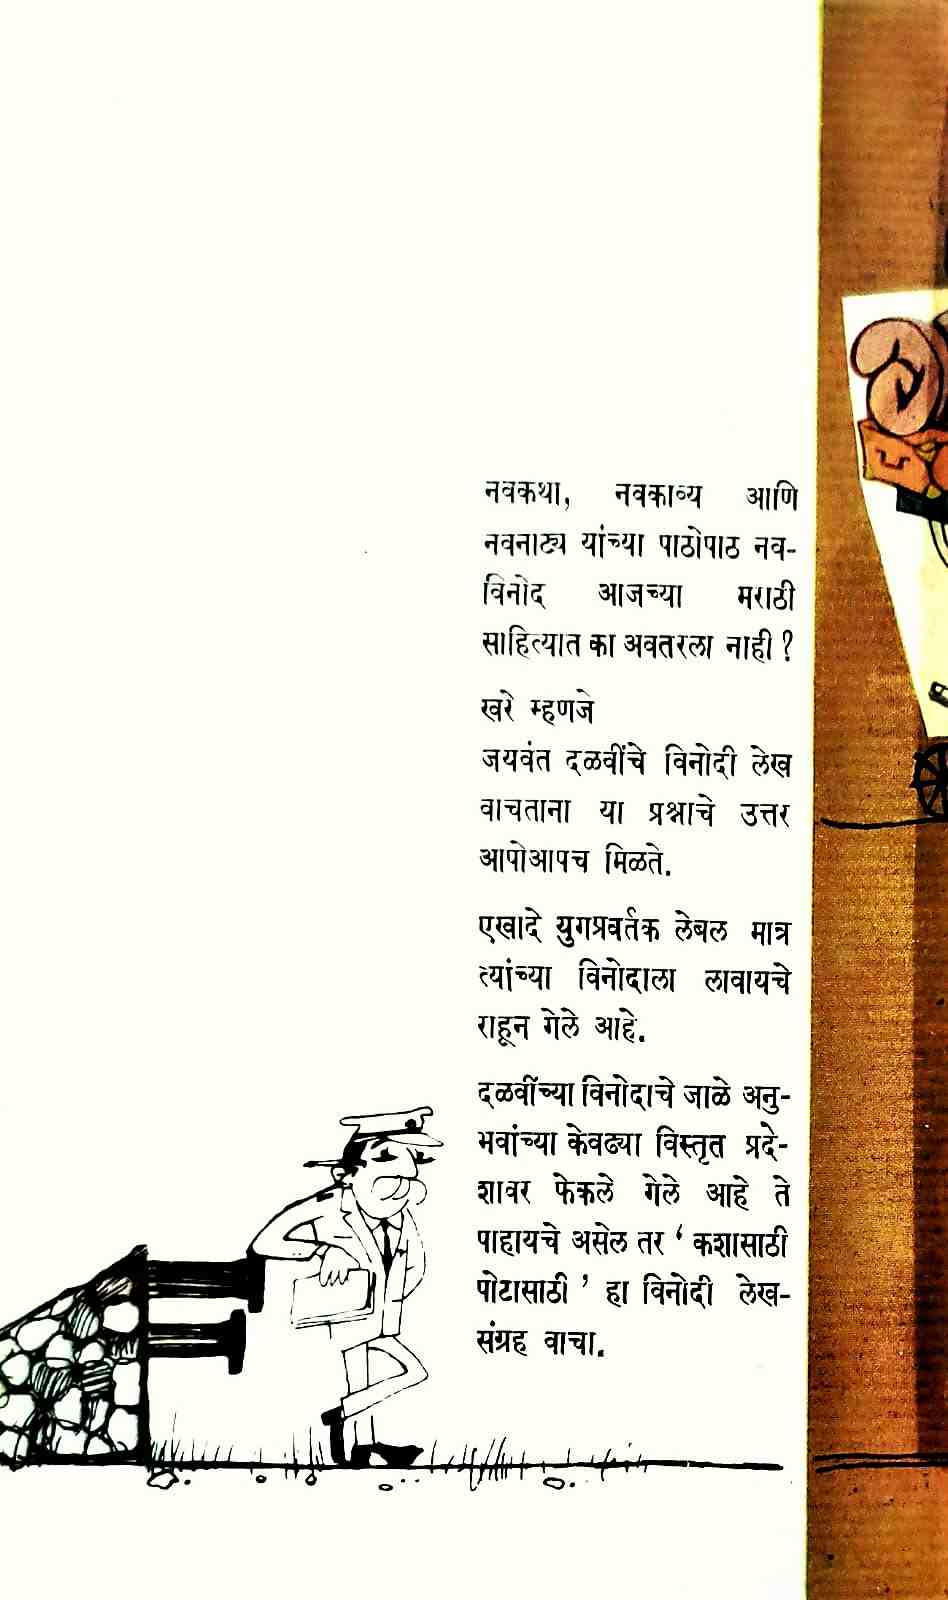 नवकथा, नवकाव्य आणि
नवनाट्य यांच्या पाठोपाठ नव-
विनोद आजच्या मराठी
साहित्यात का अवतरला नाही ?
खरे म्हणजे
जयवंत दळवींचे विनोदी लेख
वाचताना या प्रश्नाचे उत्तर
आपोआपच मिळते.
एखादे युगप्रवर्तक लेबल मात्र
त्यांच्या विनोदाला लावायचे
राहून गेले आहे.
दळवींच्या विनोदाचे जाळे अनु-
भवांच्या केवढ्या विस्तृत प्रदे-
शावर फेकले गेले आहे ते
पाहायचे असेल तर ‘ कशासाठी
पोटासाठी ’ हा विनोदी लेख-
संग्रह वाचा.